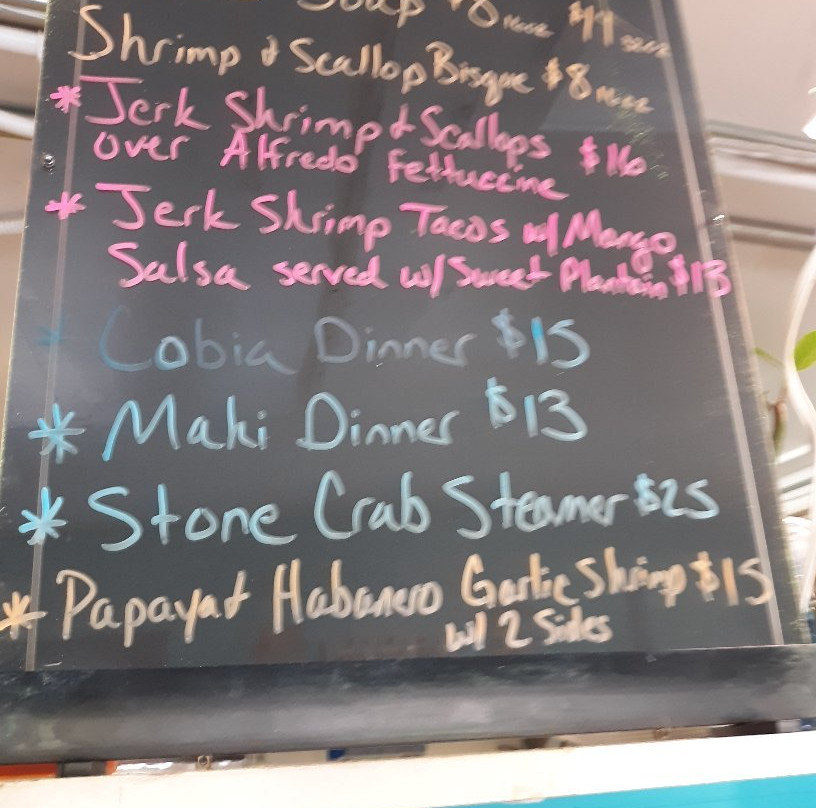 Soup
Shrimp & Scallop Bisque $8
* Jerk Shrimp & Scallops
over Alfredo Fettuccine $16
* Jerk Shrimp Tacos w/ Mango
Salsa served w/ Sweet Plantain $13
* Cobia Dinner $15
* Mahi Dinner $13
* Stone Crab Steamer $25
* Papaya & Habanero Garlic Shrimp $15
w/ 2 Sides